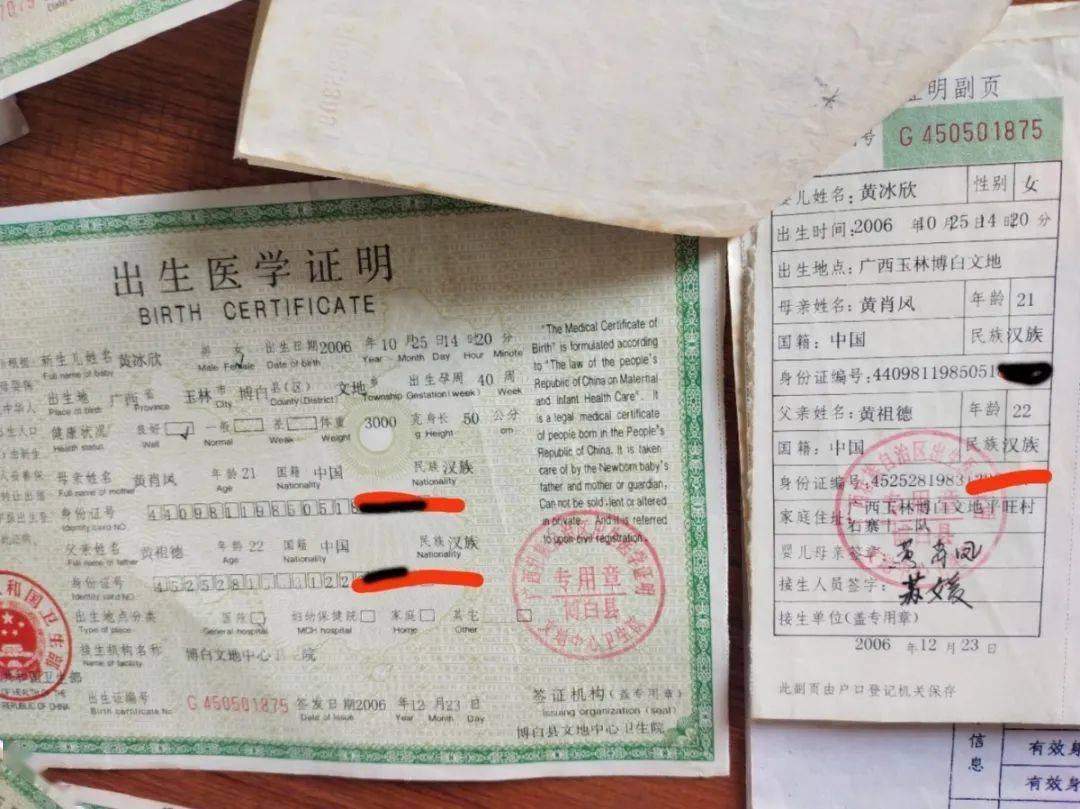 出生医学证明
BIRTH CERTIFICATE
新生儿姓名 黄冰欣 男 女 √ 出生日期 2006 年 10 月 25 日 14 时 20 分
Full name of baby Male Female Date of birth Year Month Day Hour Minute
出生地 广西 省 玉林 市 博白 县(区) 文地 乡 出生孕周 40 周
Place of birth Province City County(District) Township Gestation(week) Week
健康状况 良好 √ 一般 差 体重 3000 克 身长 50 公分
Health status Well Normal Weak Weight g Height cm
母亲姓名 黄肖风 年龄 21 国籍 中国 民族 汉族
Full name of mother Age Nationality Nationality
身份证号 44098119850518
Identity card NO.
父亲姓名 黄祖德 年龄 22 国籍 中国 民族 汉族
Full name of father Age Nationality Nationality
身份证号
Identity card NO.
出生地点分类 医院 妇幼保健院 家庭 其它
Type of place General hospital MCH hospital Home Other
接生机构名称 博白文地中心卫生院
Name of facility
出生证编号 G 450501875 签发日期 2006 年 12 月 23 日
Birth certificate No. Date of issue Year Month Day
签证机构(盖专用章)
Issuing organization (seal)
博白县文地中心卫生院
"The Medical Certificate of
Birth" is formulated according
to "The law of the people's
Republic of China on Maternal
and Infant Health Care". It
is a legal medical certificate
of people born in the People's
Republic of China. It is taken
care of by the Newborn baby's
father and mother or guardian,
Can not be sold, lent or altered
in private. And it is referred
to upon civil registration.
专用章
博白县
文地中心卫生院
明副页
号 G 450501875
儿姓名: 黄冰欣 性别 女
出生时间: 2006 年10 月25日14 时20 分
出生地点: 广西玉林博白文地
母亲姓名: 黄肖风 年龄 21
国籍: 中国 民族 汉族
身份证编号: 4409811985051
父亲姓名: 黄祖德 年龄 22
国籍: 中国 民族 汉族
身份证编号: 4525281983
家庭住址: 广西玉林博白文地平旺村
石寨十 队
婴儿母亲签章:
接生人员签字: 苏媛
接生单位(盖专用章)
2006 年 12 月 23 日
此副页由户口登记机关保存
信息
有效身
有效身